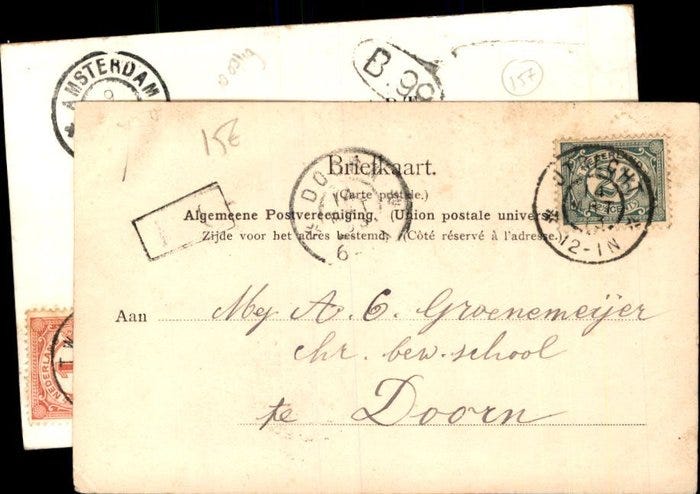 AMSTERDAM
9
oostig
B.99
15E
15E
Briefkaart.
(Carte postale.)
Algemeene Postvereeniging. (Union postale univers
Zijde voor het adres bestemd. (Côté réservé à l'adresse.
DOORN
6
NEDERLAND
12-1N
Aan Mej A. C. Groenemeijer
chr. bew. school
te Doorn
NEDERLAND
1